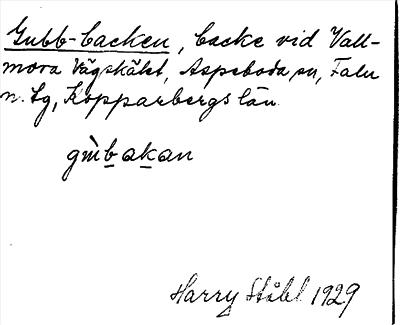 Gubb-backen, backe vid Vall-
mora Vägskälet, Aspeboda sn, Falu
n. tg, Kopparbergs län
gùbakan
Harry Ståhl 1929